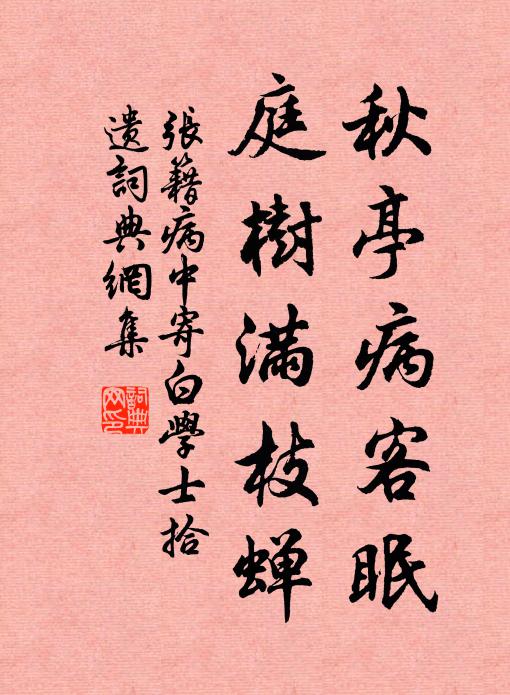 秋亭病客眠
庭樹滿枝蟬
張籍病中寄白學士拾
遺詞典網集
詞典
网印